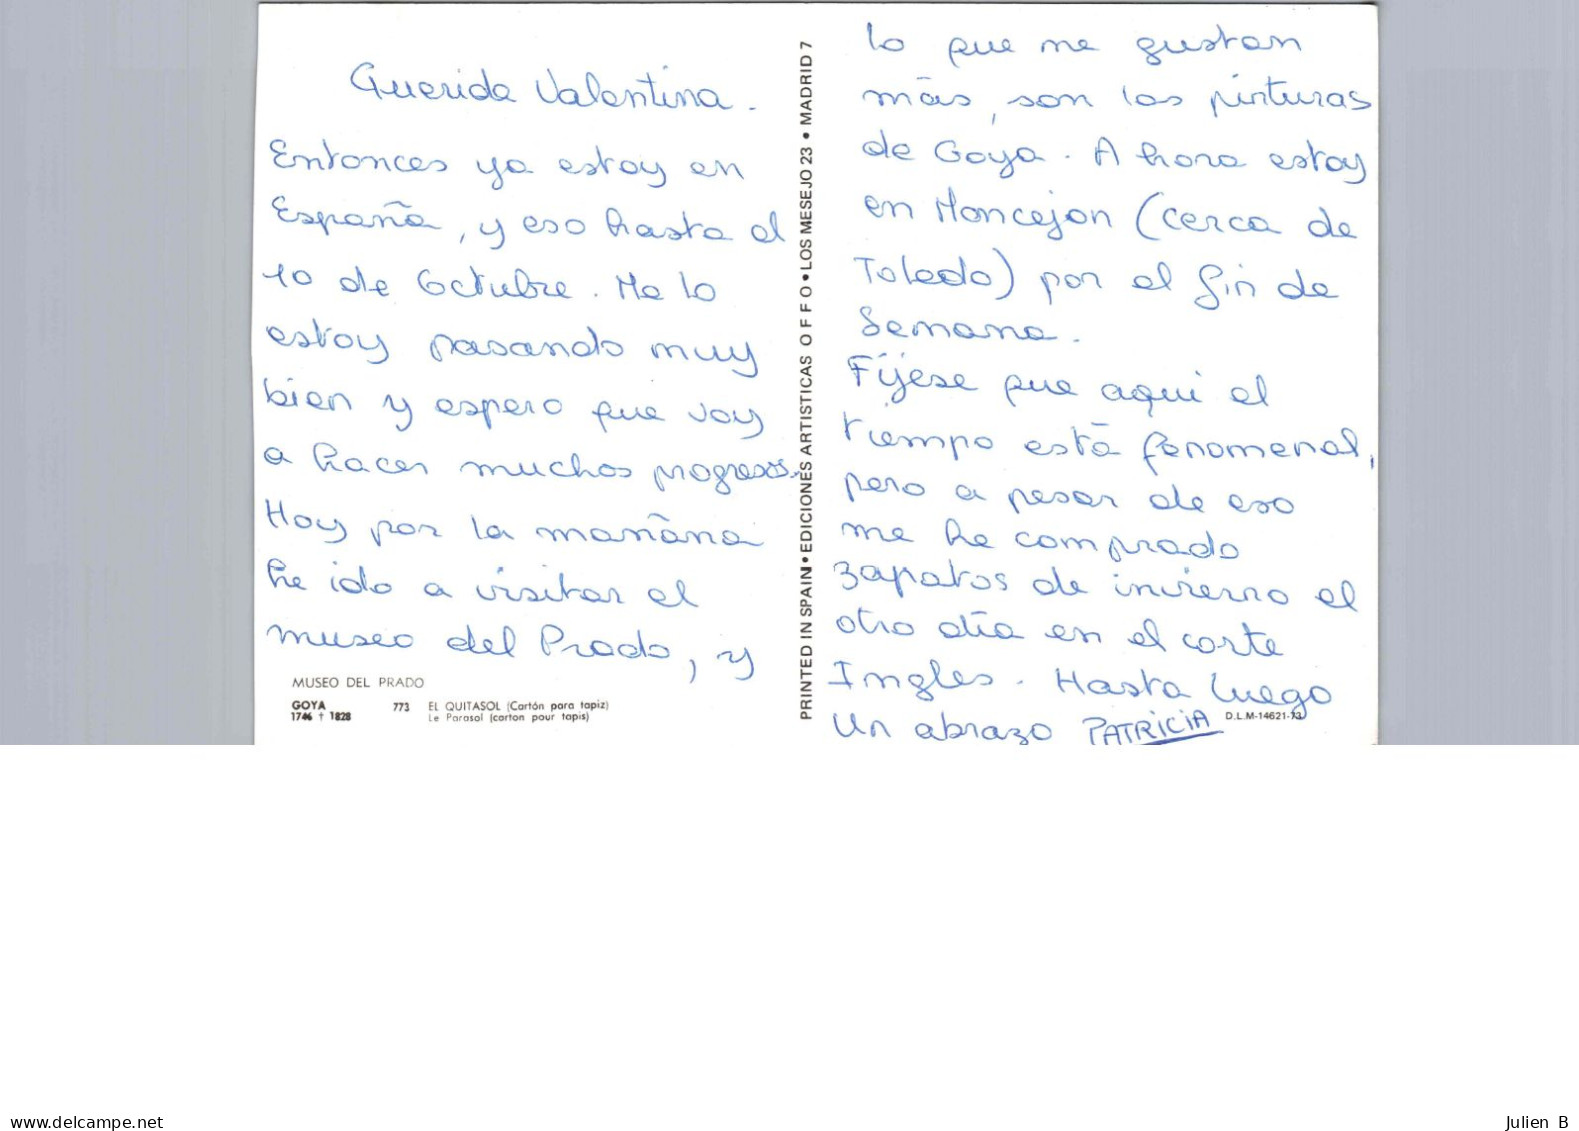 Querida Valentina.
Entonces ya estoy en
España, y eso hasta el
10 de Octubre. Me lo
estoy pasando muy
bien y espero que voy
a hacer muchos progresos.
Hoy por la mañana
he ido a visitar el
museo del Prado, y
MUSEO DEL PRADO
GOYA 773 EL QUITASOL (Cartón para tapiz)
1746 † 1828 Le Parasol (carton pour tapis)
PRINTED IN SPAIN • EDICIONES ARTISTICAS OFFO • LOS MESEJO 23 • MADRID 7
lo que me gustan
más, son las pinturas
de Goya. A hora estoy
en Moncejon (cerca de
Toledo) por el fin de
Semana.
Fíjese que aqui el
tiempo está fenomenal,
pero a pesar de eso
me he comprado
zapatos de invierno el
otro día en el corte
Ingles. Hasta luego
Un abrazo PATRICIA
D.L.M-14621-73
www.delcampe.net
Julien B